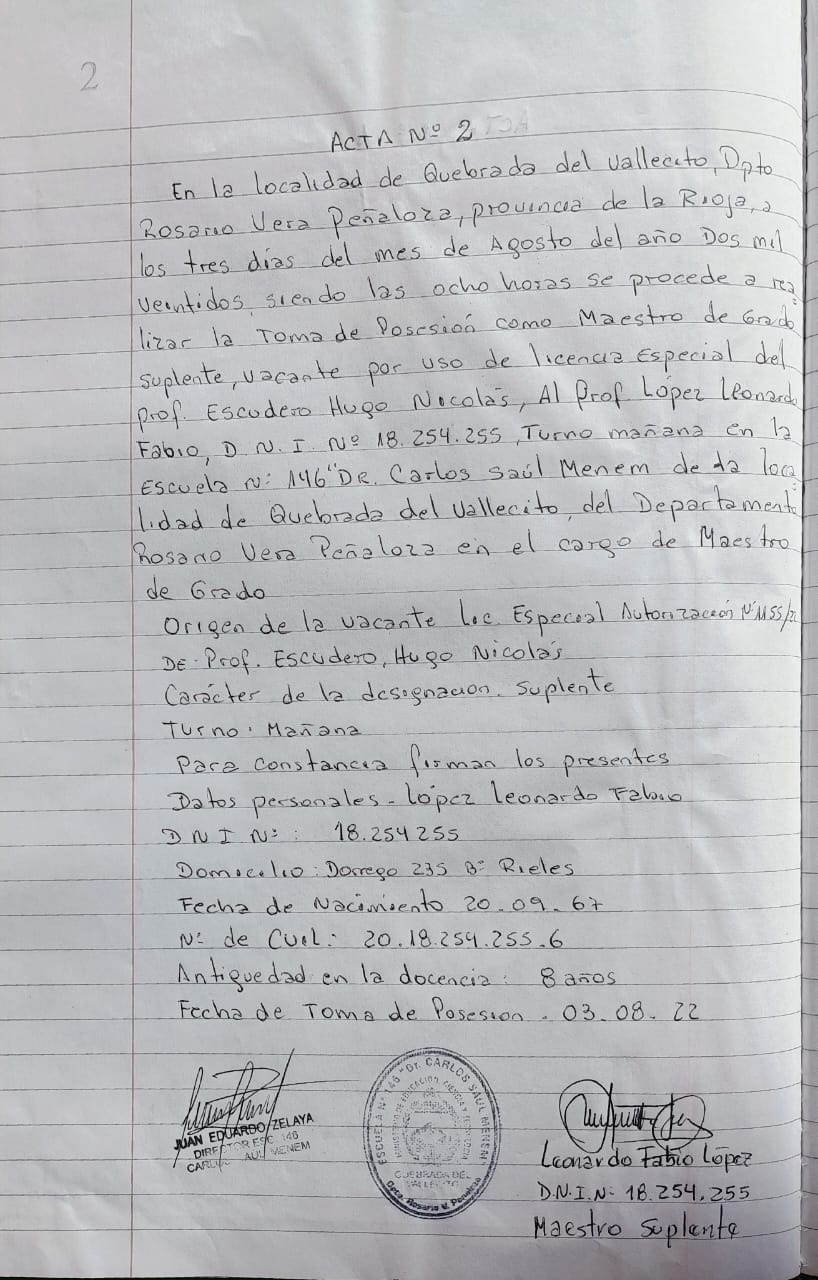 2
ACTA Nº 2
En la localidad de Quebrada del Vallecito, Dpto
Rosario Vera Peñaloza, provincia de la Rioja, a
los tres días del mes de Agosto del año Dos mil
veintidos, siendo las ocho horas se procede a rea
lizar la Toma de Posesión como Maestro de Grado
suplente, vacante por uso de licencia Especial del
prof. Escudero Hugo Nicolás, Al Prof López Leonardo
Fabio, D. N. I. Nº 18.254.255, Turno mañana en la
Escuela Nº 146 "DR. Carlos Saúl Menem de la loca
lidad de Quebrada del Vallecito, del Departamento
Rosario Vera Peñaloza en el cargo de Maestro
de Grado
Origen de la vacante Lic. Especial Autorización Nº 1155/22
DE: Prof. Escudero, Hugo Nicolás
Carácter de la designacion. Suplente
Turno: Mañana
Para constancia firman los presentes
Datos personales - López Leonardo Fabio
D N I Nº: 18.254255
Domicilio: Dorrego 235 Bº Rieles
Fecha de Nacimiento 20.09.67
Nº de Cuil: 20.18.254.255.6
Antiguedad en la docencia: 8 años
Fecha de Toma de Posesion - 03-08-22
JUAN EDUARDO ZELAYA
DIRECTOR ESC. 146
CARLOS SAUL MENEM
ESCUELA Nº 146 "Dr. CARLOS SAUL MENEM"
MINISTERIO DE EDUCACION, CIENCIA Y
QUEBRADA DEL
VALLECITO
Dpto. Rosario V. Peñaloza
Leonardo Fabio López
D.N.I.Nº 18.254.255
Maestro Suplente